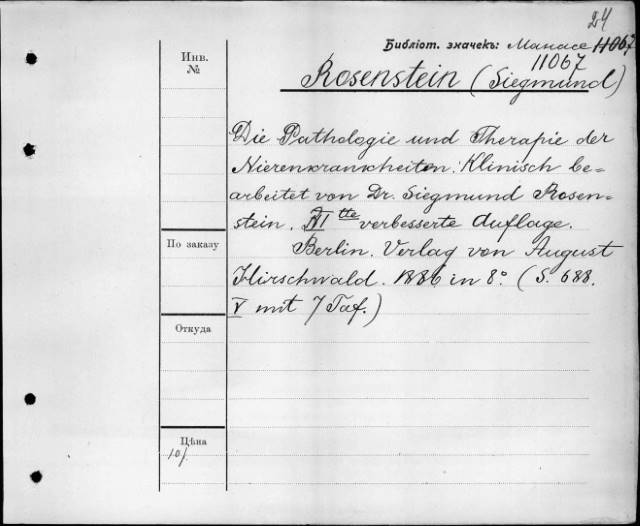 24
Библіот. значекъ: Манасе 11067
11067
Инв.
№
Rosenstein (Siegmund)
Die Pathologie und Therapie der
Nierenkrankheiten. Klinisch be=
arbeitet von Dr. Siegmund Rosen=
stein. verbesserte Auflage.
По заказу
Berlin. Verlag von August
Hirschwald. 1886 in 8° (S. 688.
V mit 7 Taf.)
Откуда
Цѣна